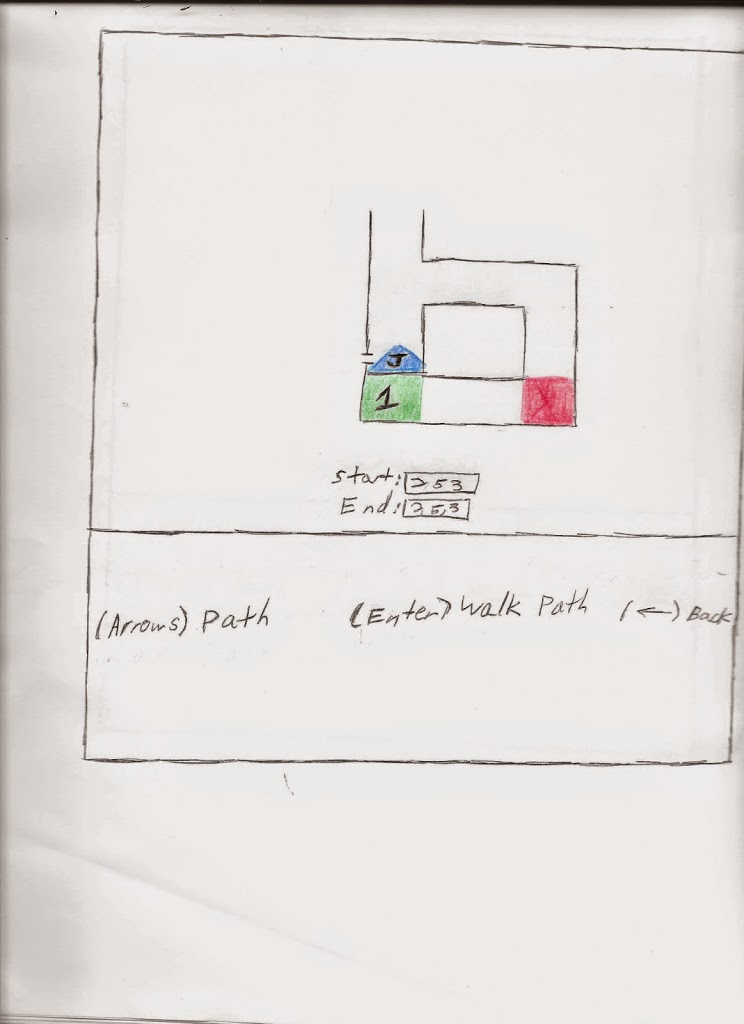 J
1
X
Start: 253
End: 25,3
(Arrows) Path (Enter) Walk Path (←) Back